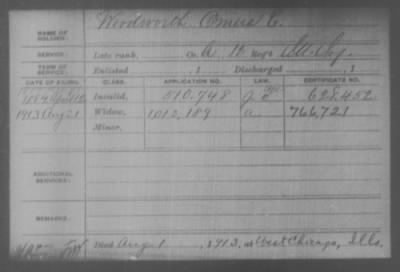 NAME OF SOLDIER: Woodworth Omer C.
SERVICE: Late rank, Co. A, Reg't Ill. Cav.
TERM OF SERVICE: Enlisted , 1 Discharged , 1
DATE OF FILING. CLASS. APPLICATION NO. LAW. CERTIFICATE NO.
Invalid, 510.748 628.452
1913 Aug 21 Widow, 1012,189 a. 766,721
Minor,
ADDITIONAL SERVICES:
REMARKS:
Died Aug 1 , 1913, at West Chicago, Ills.